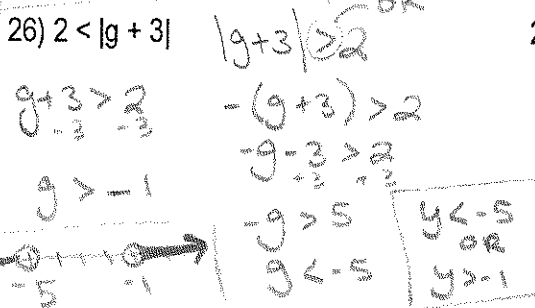 26) 2 < |g + 3|
|g+3| > 2
OR
g+3 > 2
-3 -3
g > -1
-5 -1
-(g+3) > 2
-g-3 > 2
+3 +3
-g > 5
g < -5
y < -5
OR
y > -1